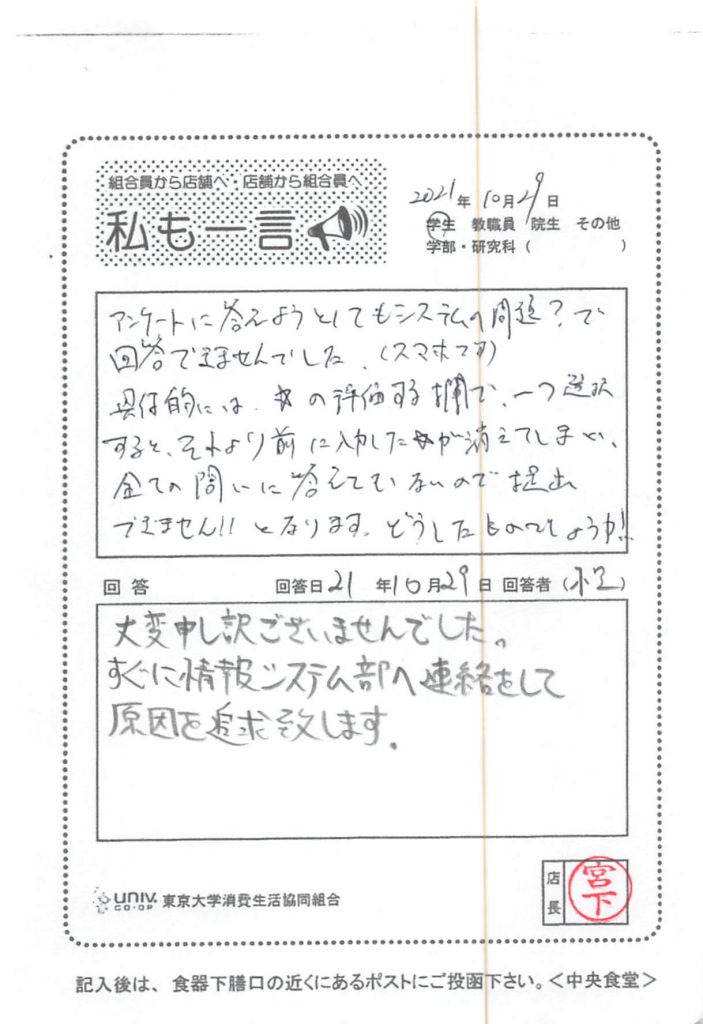 組合員から店舗へ・店舗から組合員へ
私も一言
2021年10月29日
学生 教職員 院生 その他
学部・研究科( )
アンケートに答えようとしてもシステムの問題?で
回答できませんでした。(スマホです)
具体的には、☆の評価する欄で、一つ選択
すると、それより前に入力した☆が消えてしまい、
全ての問いに答えていないので提出
できません!! となります。どうしたものでしょうか!
回答 回答日21年10月29日 回答者( )
大変申し訳ございませんでした。
すぐに情報システム部へ連絡をして
原因を追求致します。
UNIV. CO-OP 東京大学消費生活協同組合
店長 宮下
記入後は、食器下膳口の近くにあるポストにご投函下さい。<中央食堂>